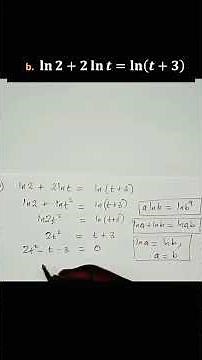 b. ln 2 + 2 ln t = ln(t + 3)
) ln2 + 2lnt = ln(t+3)
ln2 + lnt² = ln(t+3)
ln2t² = ln(t+3)
2t² = t+3
2t² - t - 3 = 0
a lnb = lnbᵃ
lna + lnb = lnab
lna = lnb,
a = b